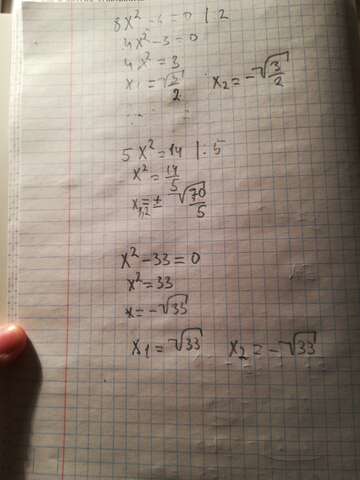 8x² - 6 = 0 | 2
4x² - 3 = 0
4x² = 3
x₁ = √3/2 x₂ = -√3/2
5x² = 14 | : 5
x² = 14/5
x₁,₂ = ± √70/5
x² - 33 = 0
x² = 33
x = -√33
x₁ = √33 x₂ = -√33